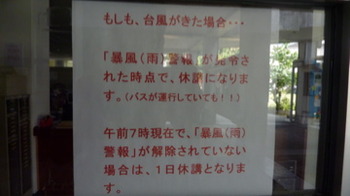 もしも、台風がきた場合・・・
「暴風(雨)警報」が発令さ
れた時点で、休講になりま
す。(バスが運行していても!!)
午前7時現在で、「暴風(雨)
警報」が解除されていない
場合は、1日休講となりま
す。